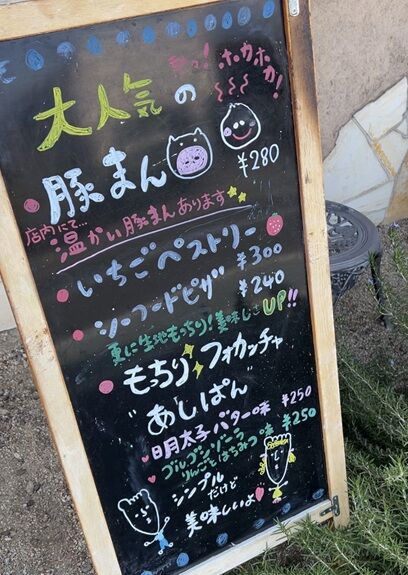 大人気の
ホカホカ!
豚まん
¥280
店内にて…
温かい豚まんあります
いちごペストリー
¥300
シーフードピザ
¥240
更に生地もっちり!美味しさUP!!
もっちりフォカッチャ
"あしぱん"
明太子バター味 ¥250
ゴルゴンゾーラ
りんごとはちみつ味 ¥250
シンプル
だけど
美味しいよ